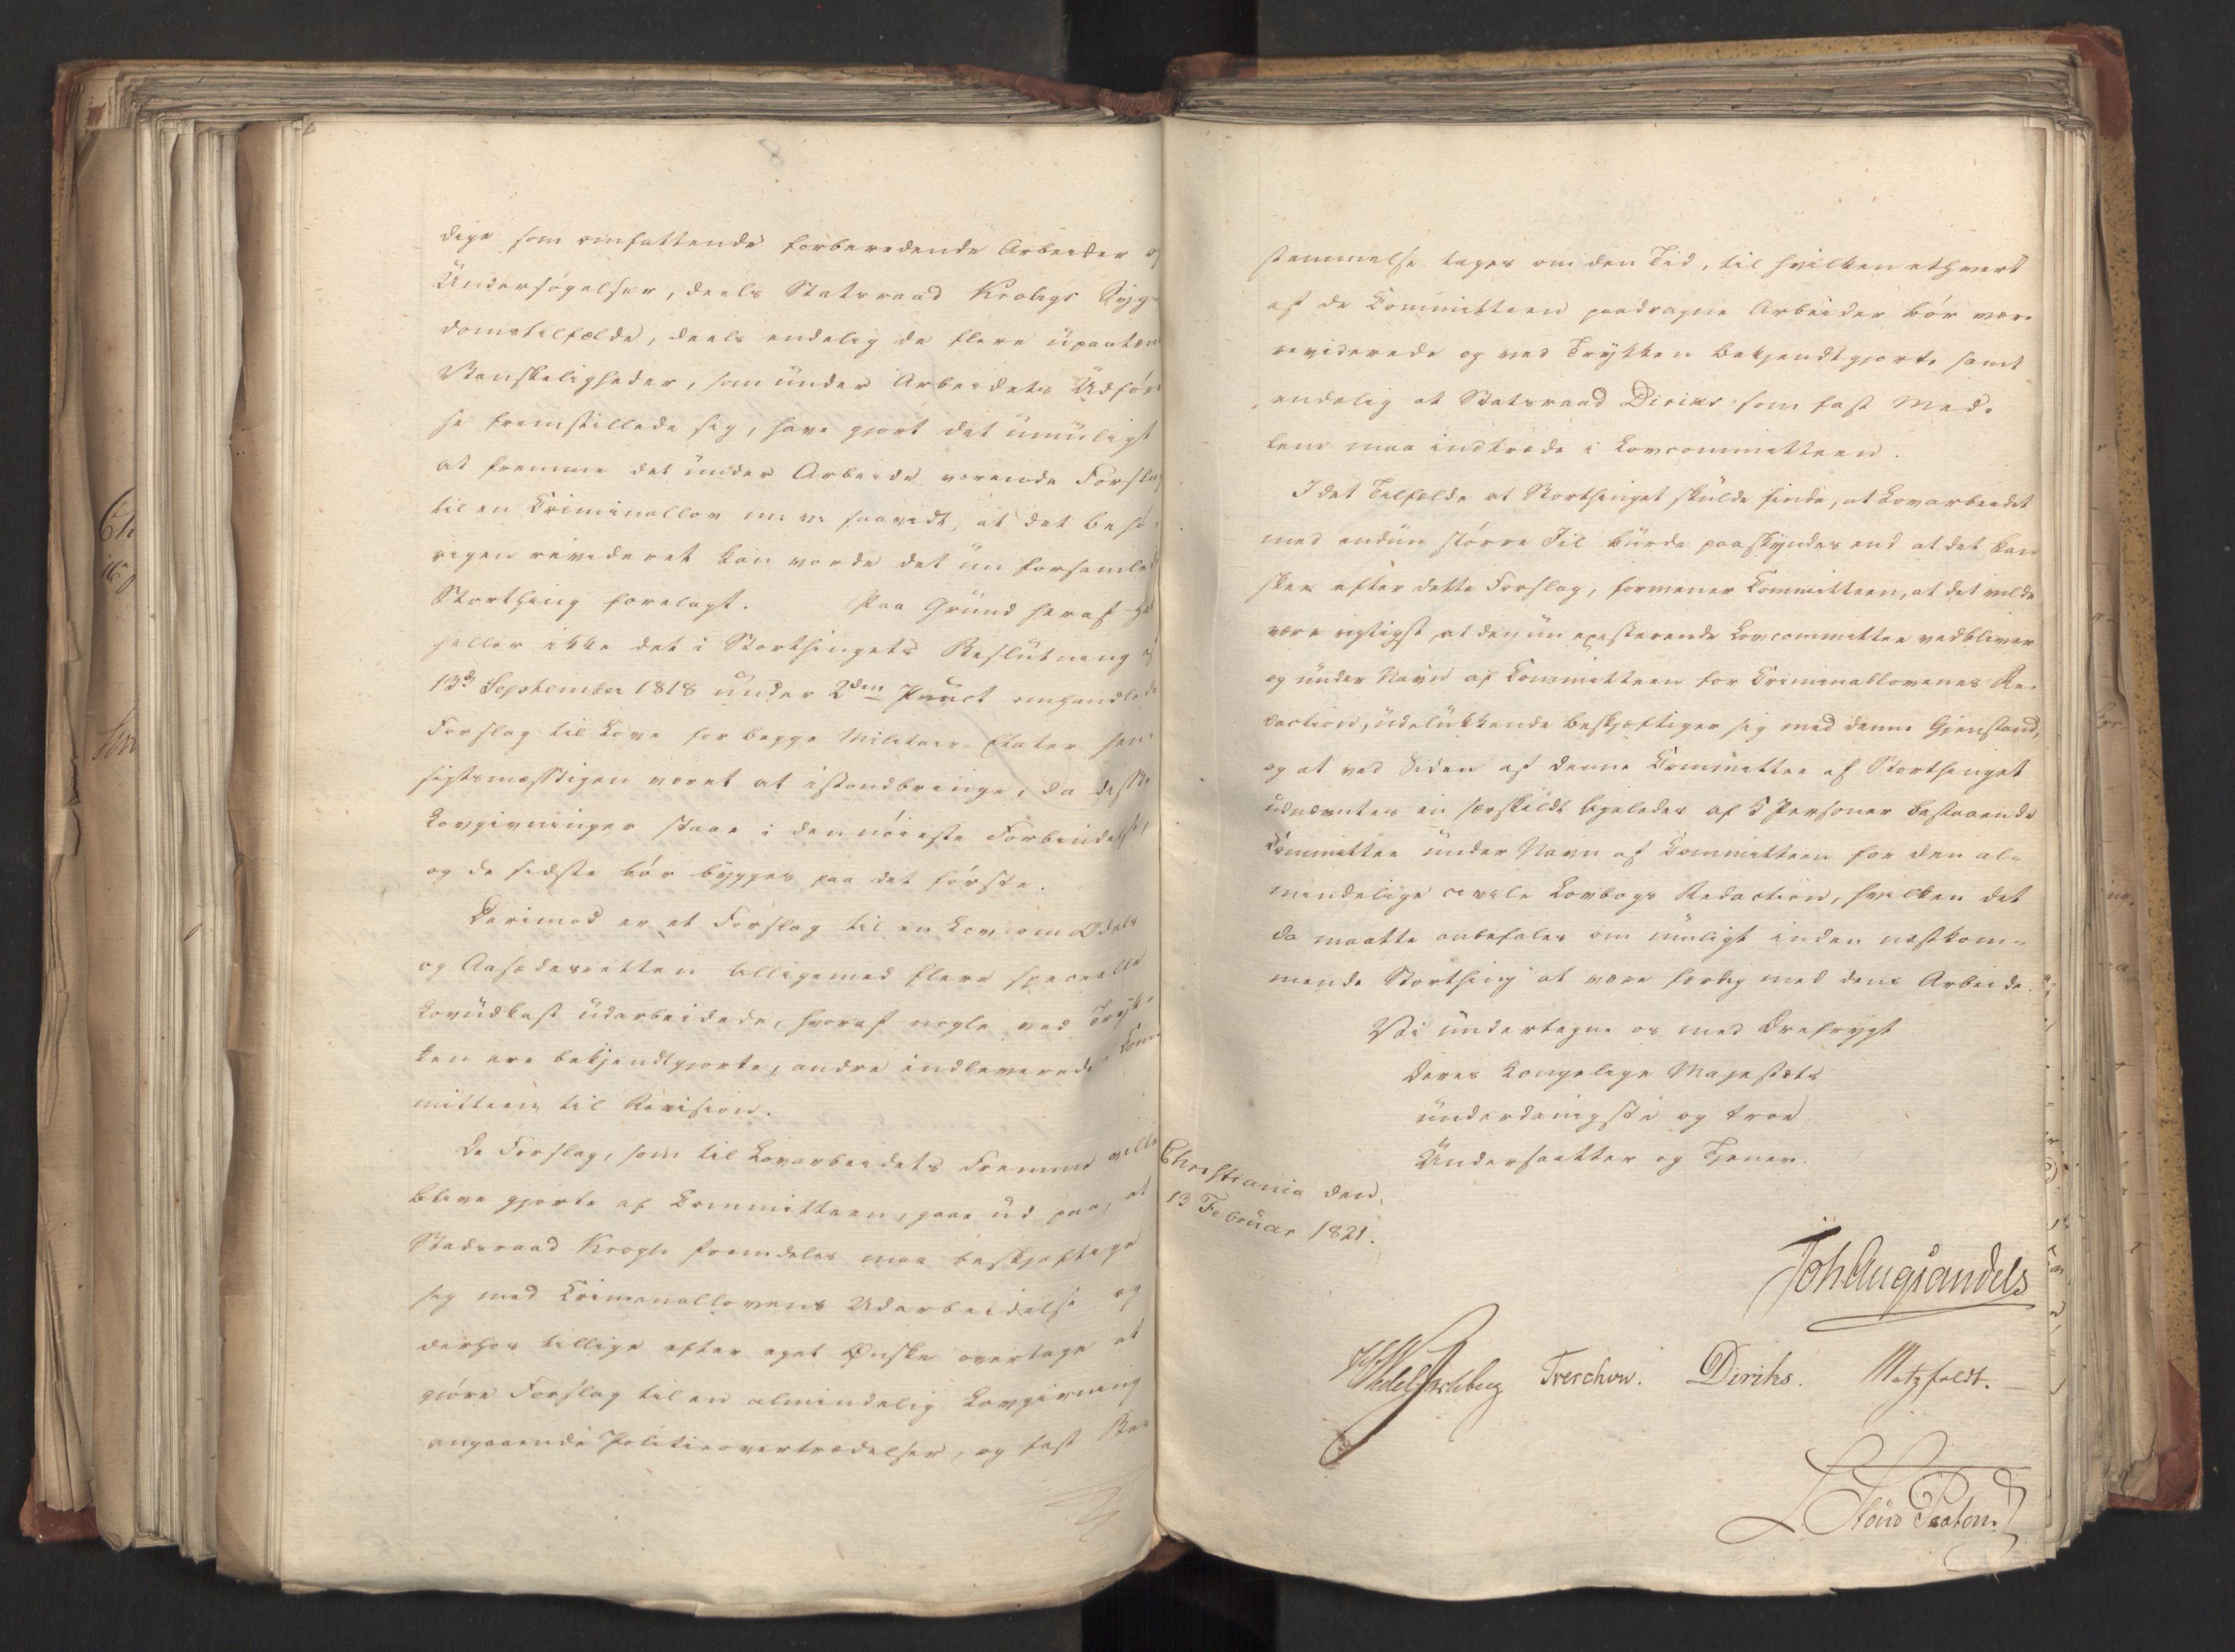 dige som omfattende forberedende Arbeider og
Undersøgelser, deels Statsraad Kroghs Syg-
domstilfælde, deels endelig de flere upaatæn
Vanskeligheder, som under Arbeidets Udføre
se fremstillede sig, have gjort det umuligt
at fremme det under Arbeide værende Forslag
til en Criminallov saavidt, at det behø-
rigen revideret kan vorde det nu forsamlede
Storthing forelagt. Paa Grund heraf har
heller ikke det i Storthingets Beslutning af
13d September 1818 under 2den Punct omhandlede
Forslag til Love for begge Militair-Etater hen-
sigtsmæssigen været at istandbringe, da disse
Lovgivninger staae i den nøieste Forbindelse,
og de sidste bør bygges paa det første.
Derimod er et Forslag til en Lov om Odels
og Aasædesretten tilligemed flere specielle
Lovudkast udarbeidede, hvoraf nogle ved Tryk-
ken ere bekjendtgjorte, andre indleverede Com
mitteen til Revision.
De Forslag, som til Lovarbeidets Fremme ville
blive gjorte af Committeen, gaae ud paa, at
Stadsraad Krogh fremdeles maa beskjeftige
sig med Criminallovens Udarbeidelse og
derhos tillige efter eget Ønske overtage at
gjøre Forslag til en almindelig Lovgivning
angaaende Politieovertrædelser, og fast Be
stemmelse tages om den Tid, til hvilken ethvert
af de Committeen paadragne Arbeider bør være
reviderede og ved Trykken bekjendtgjorte samt
endelig at Statsraad Diriks som fast Med-
lem maa indtræde i Lovcommitteen.
I det Tilfælde at Storthinget skulde finde, at Lovarbeidet
med endnu større Iil burde paaskyndes end at det kan
skee efter dette Forslag, formener Committeen, at det vilde
være rigtigst, at den nu existerende Lovcommittee vedbliver
og under Navn af Committeen for Criminallovenes Re-
daction, udelukkende beskjæftiger sig med denne Gjenstand,
og at ved Siden af denne Committee af Storthinget
udnævntes en særskildt ligeledes af 5 Personer bestaaende
Committee under Navn af Committeen for den al-
mindelige civile Lovbogs Redaction, hvilken det
da maatte anbefales om muligt inden næstkom-
mende Storthing at være færdig med dens Arbeide.
Vi undertegne os med Ærefrygt
Deres Kongelige Majestæts
underdanigste og troe
Undersaatter og Tjener.
Christiania den
13 Februar 1821.
Joh Aug Sandels
Wedel Jarlsberg Treschow. Diriks. Motzfeldt.
Stoud Platou.